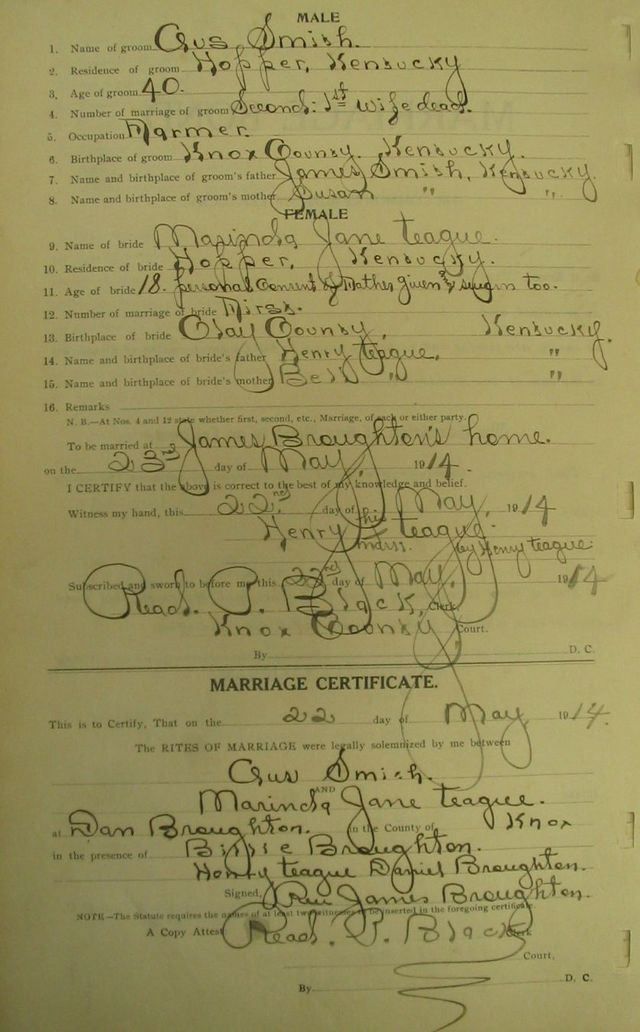 MALE
1. Name of groom Gus Smith.
2. Residence of groom Hopper, Kentucky
3. Age of groom 40.
4. Number of marriage of groom Second: 1st wife dead.
5. Occupation Farmer.
6. Birthplace of groom Knox County. Kentucky.
7. Name and birthplace of groom's father James Smith, Kentucky.
8. Name and birthplace of groom's mother Susan " ".
FEMALE
9. Name of bride Marinda Jane Teague.
10. Residence of bride Hopper, Kentucky.
11. Age of bride 18. personal Consent of Father given & sworn too.
12. Number of marriage of bride First.
13. Birthplace of bride Clay County, Kentucky.
14. Name and birthplace of bride's father Henry Teague, "
15. Name and birthplace of bride's mother Bell " "
16. Remarks
N. B.—At Nos. 4 and 12 state whether first, second, etc., Marriage, of each or either party.
To be married at James Broughton's home.
on the 23rd day of May, 1914.
I CERTIFY that the above is correct to the best of my knowledge and belief.
Witness my hand, this 22nd day of May, 1914
Henry his Teague.
by Henry Teague.
Subscribed and sworn to before me this day of May, 1914
Read. P. Black, Clerk
Knox County Court.
By D. C.
MARRIAGE CERTIFICATE.
This is to Certify, That on the 22 day of May 1914.
The RITES OF MARRIAGE were legally solemnized by me between
Gus Smith.
AND
Marinda Jane Teague.
at Dan Broughton. in the County of Knox
in the presence of Billie Broughton.
Henry Teague Daniel Broughton.
Signed, Rev James Broughton.
NOTE—The Statute requires the names of at least two witnesses to be inserted in the foregoing certificate.
A Copy Attest Read. P. Black Clerk
Court,
By D. C.